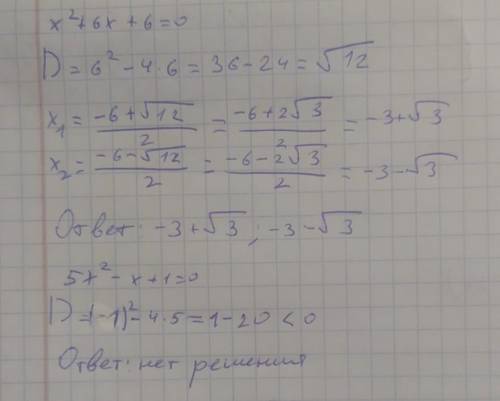 x²+6x+6=0
D=6²-4·6=36-24=√12
x₁=(-6+√12)/2=(-6+2√3)/2=-3+√3
x₂=(-6-√12)/2=(-6-2√3)/2=-3-√3
Ответ: -3+√3; -3-√3
5x²-x+1=0
D=(-1)²-4·5=1-20<0
Ответ: нет решения